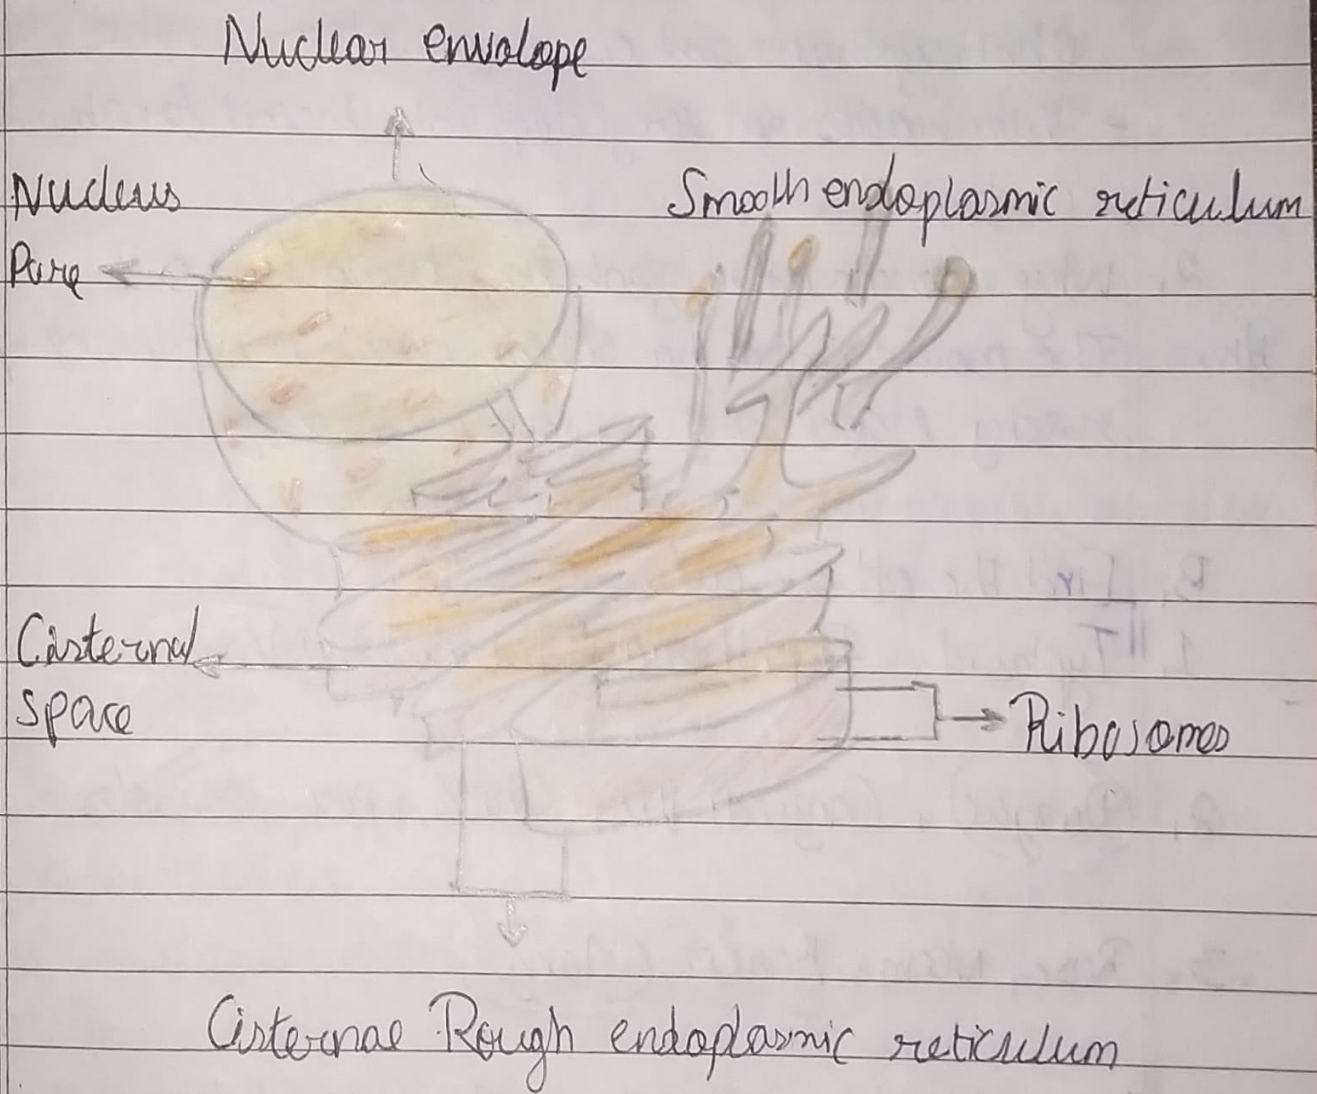 Nuclear envolope
Nucleus
Pore
Smooth endoplasmic reticulum
Cisternal
space
Ribosomes
Cisternae Rough endoplasmic reticulum